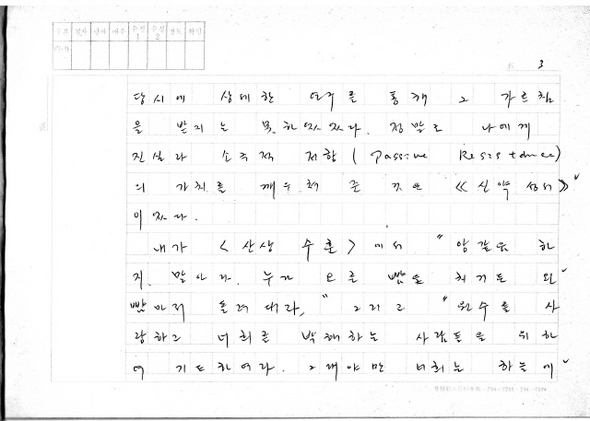 3
당시에 상세한 연구를 통해 그 가르침
을 받지는 못하였었다. 정말로 나에게
진실과 소극적 저항 ( Passive Resistance )
의 가치를 깨우쳐 준 것은 《신약 성서》
이었다.
내가 〈산상 수훈〉에서 "앙갚음 하
지 말아라. 누가 오른 뺨을 치거든 왼
뺨마저 돌려 대라," 그리고 "원수를 사
랑하고 너희를 박해하는 사람들을 위하
여 기도하여라. 그래야만 너희는 하늘에